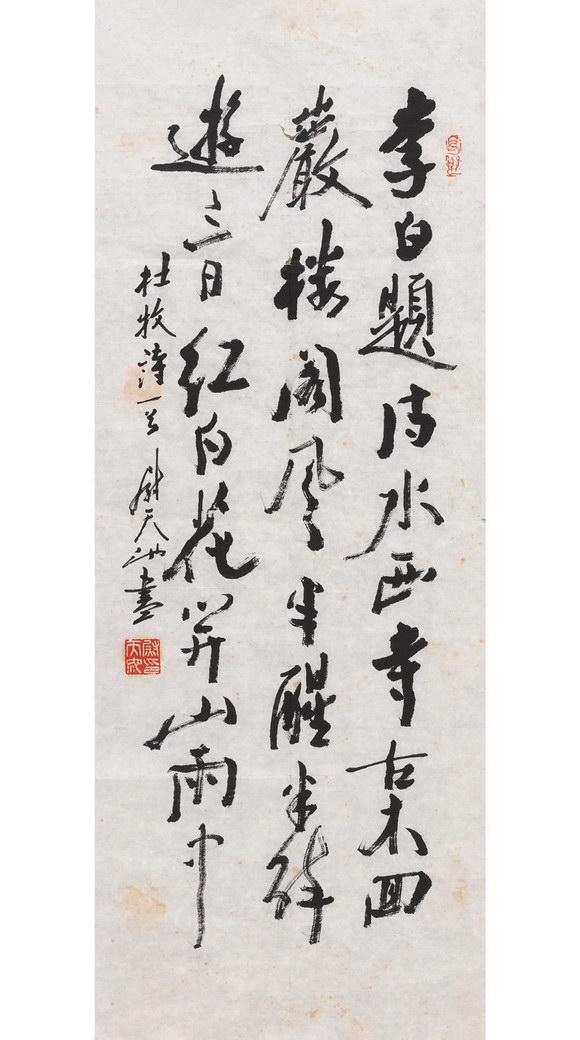 李白題詩水西寺古木回
巖樓閣風半醒半醉
遊三日紅白花開山雨中
杜牧詩一首 尉天池書